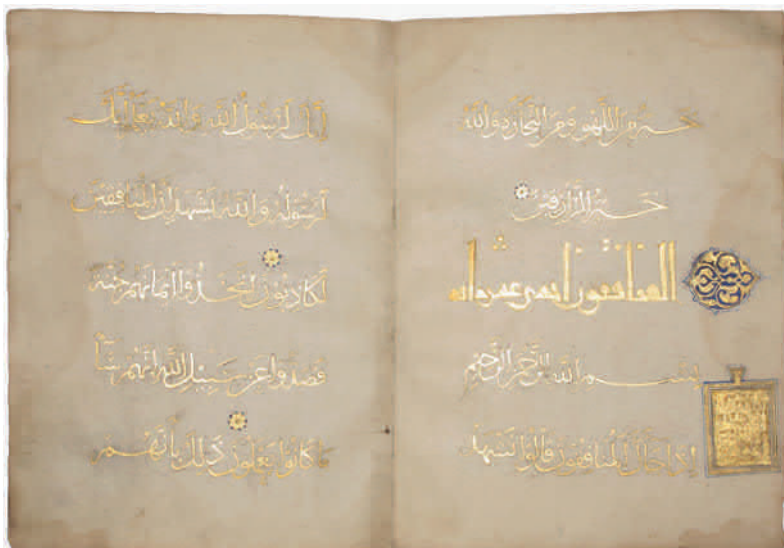 خير من اللهو ومن التجارة والله
خير الرازقين
المنافقون احدى عشر اية
بسم الله الرحمن الرحيم
اذا جاءك المنافقون قالوا نشهد
انك لرسول الله والله يعلم انك
لرسوله والله يشهد ان المنافقين
لكاذبون اتخذوا ايمانهم جنة
فصدوا عن سبيل الله انهم ساء
ما كانوا يعملون ذلك بانهم